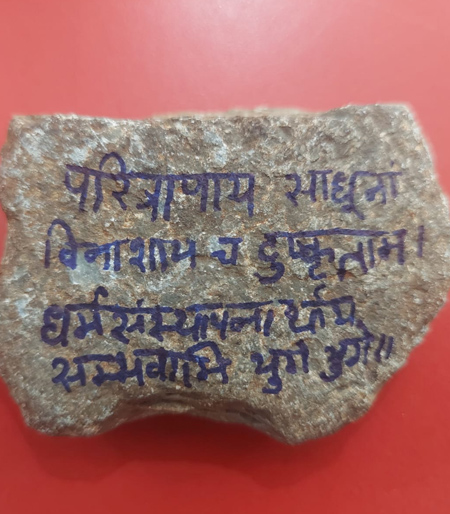 परित्राणाय साधूनां
विनाशाय च दुष्कृताम।
धर्मसंस्थापना र्थाय
सम्भवामि युगे युगे॥